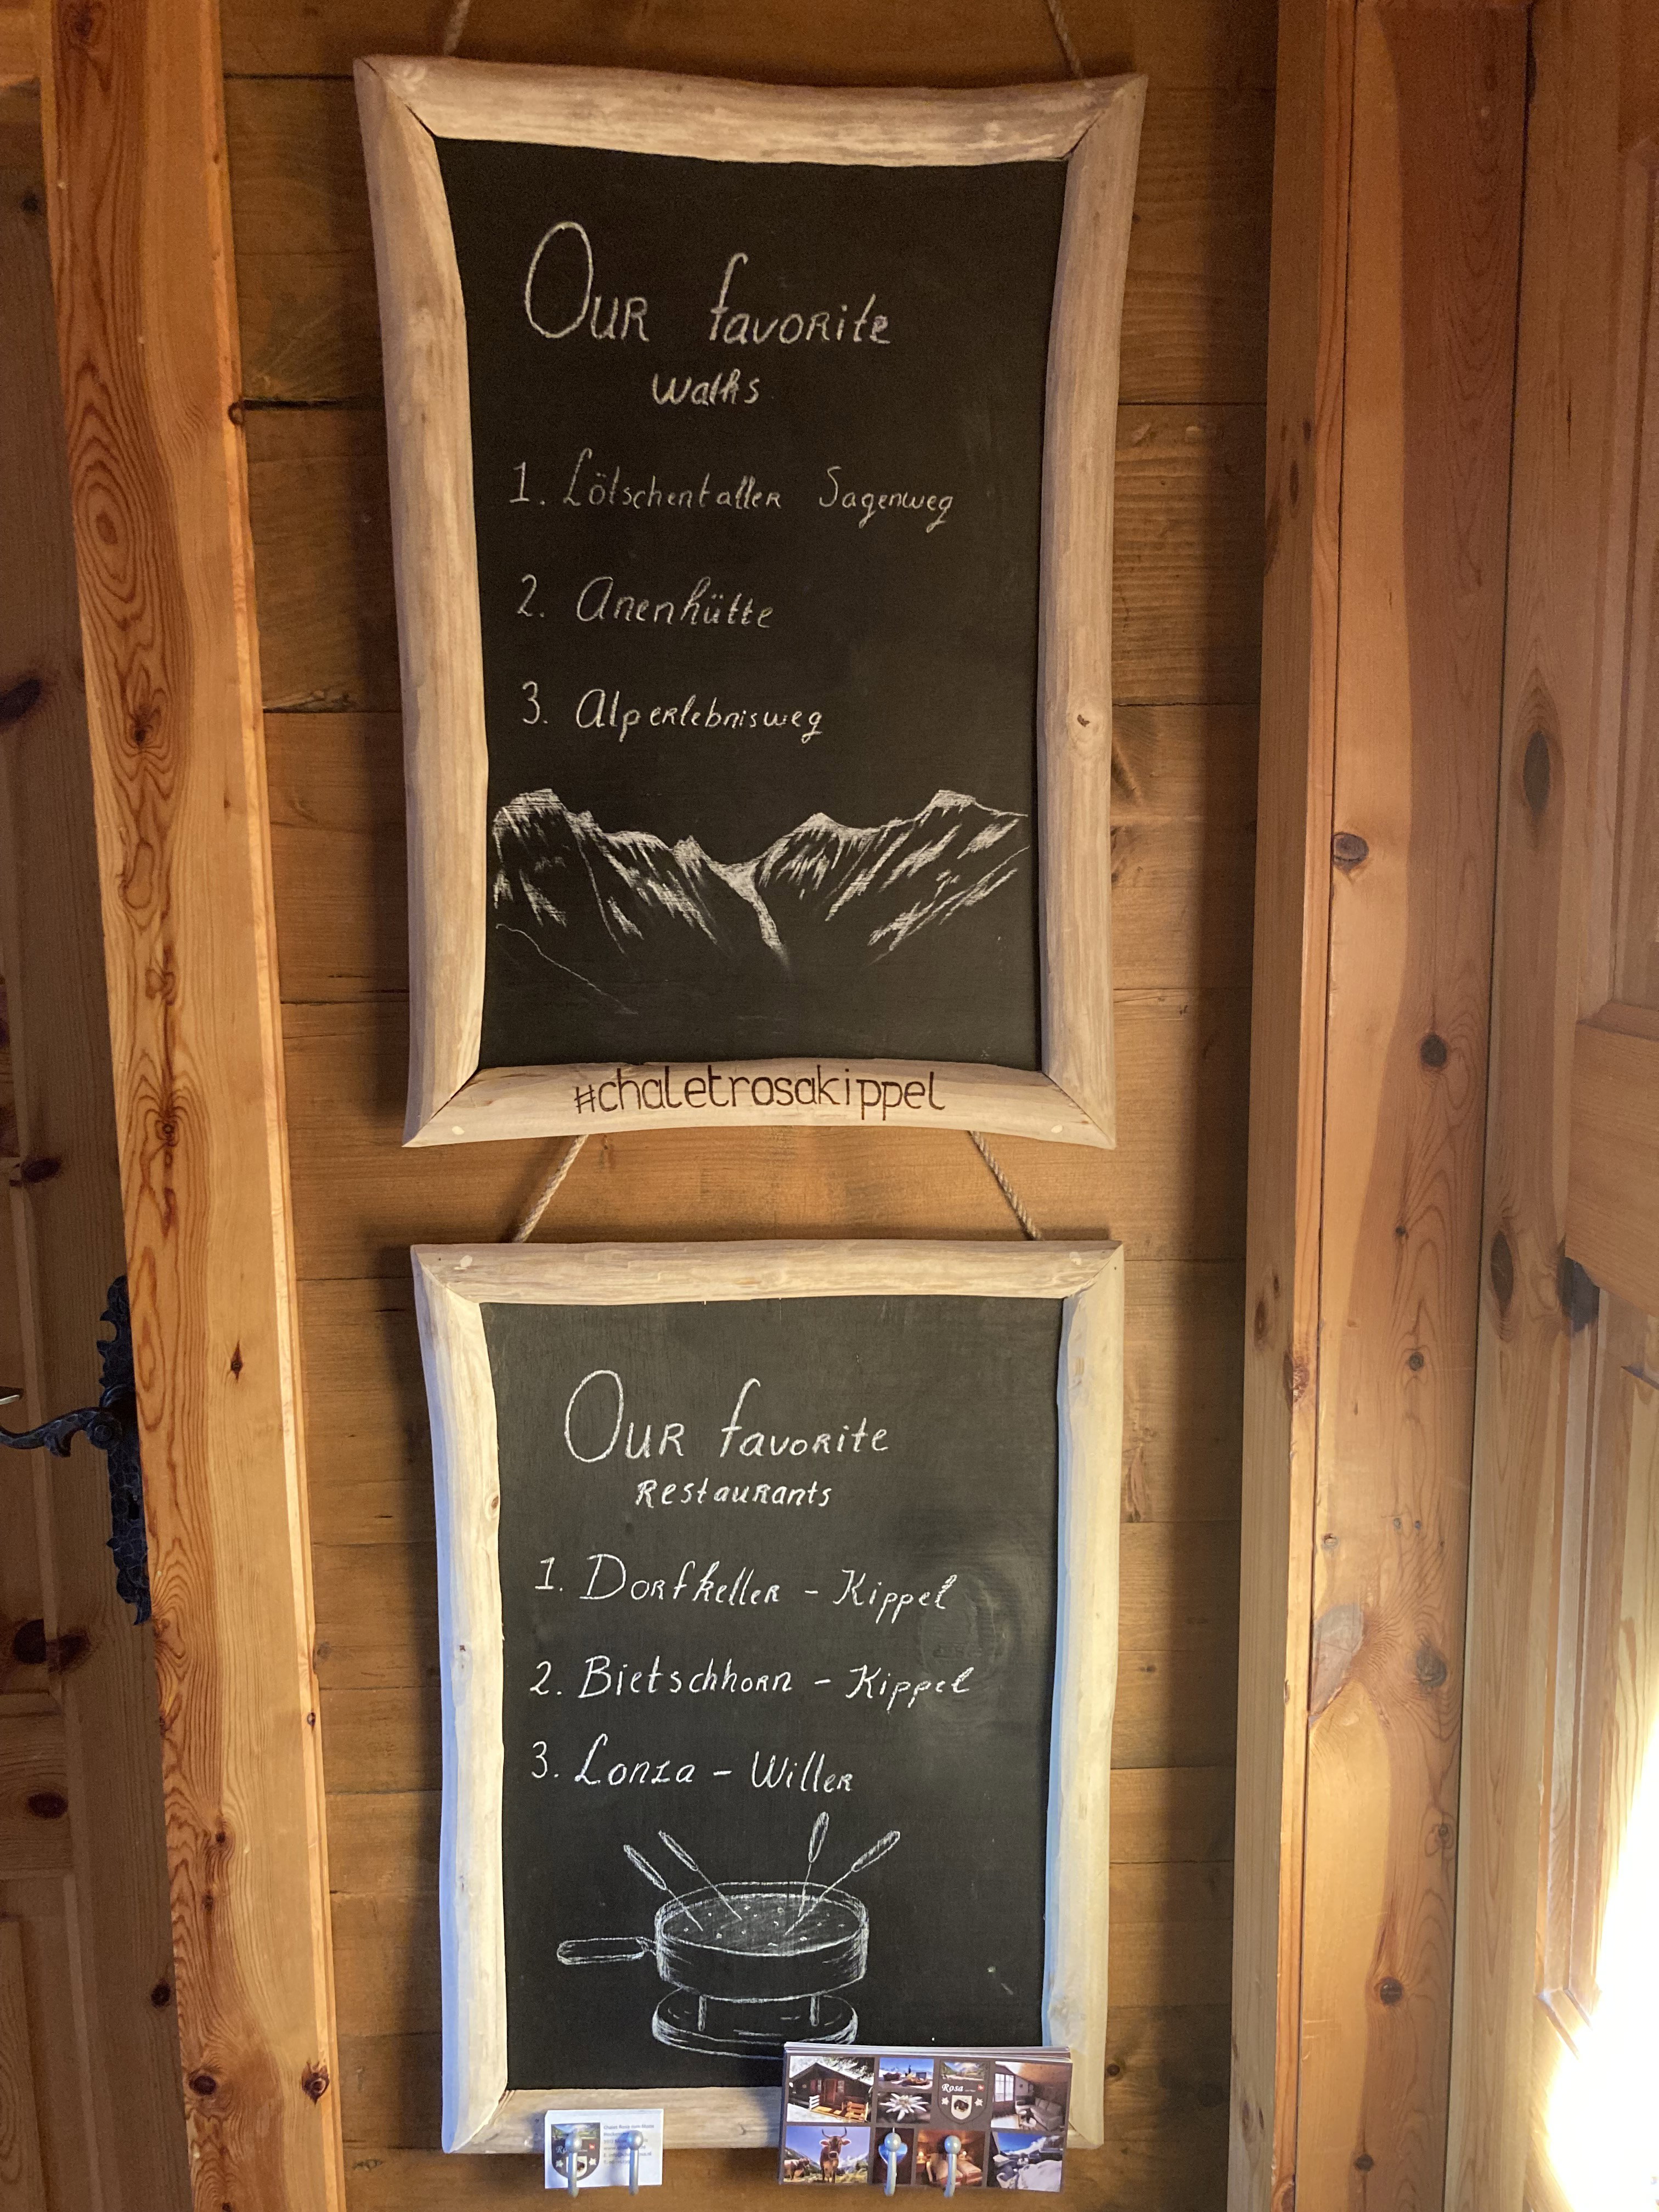 Our favorite
walks
1. Lötschentaller Sagenweg
2. Anenhütte
3. Alperlebnisweg
#chaletrosakippel
Our favorite
Restaurants
1. Dorfkeller - Kippel
2. Bietschhorn - Kippel
3. Lonza - Willer
Rosa